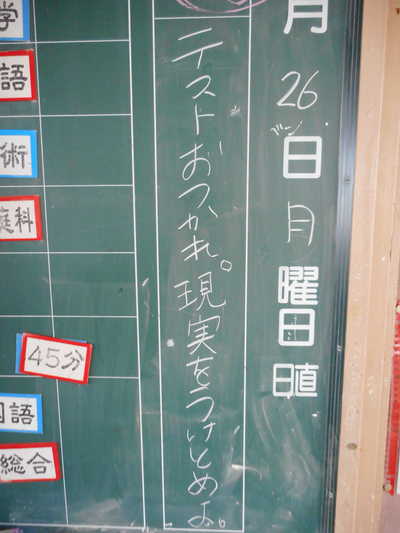 月26日月曜日
日直
テストおつかれ。現実をうけとめよ。
学
語
術
庭科
45分
国語
総合